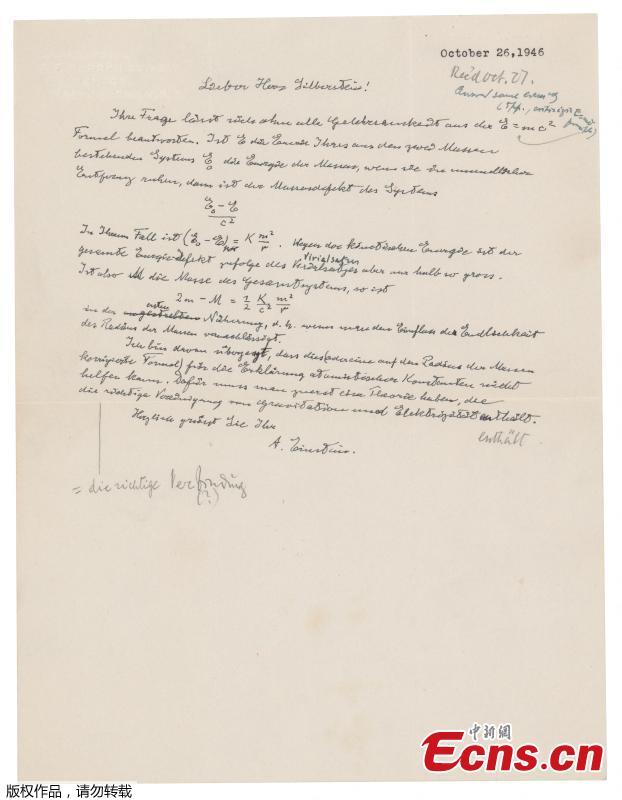 October 26, 1946
Rec'd Oct. 27.
Lieber Herr Silberstein!
Ihre Frage lässt sich ohne alle Gelehrsamkeit aus der E = mc²
Formel beantworten. Ist E die Energie Ihres aus den zwei Massen
bestehenden Systems E₀ die Energie der Massen, wenn sie in unendlicher
Entfernung ruhen, dann ist der Massendefekt des Systems
E₀ - E
c²
In Ihrem Fall ist (E₀ - E) = K m²/r . Wegen der kinetischen Energie ist der
Virialsatzes
gesamte Energie-Defekt zufolge des aber nur halb so gross.
Ist also M die Masse des Gesamtsystems, so ist
2m - M = 1/2 K/c² m²/r
ersten
in der angestrebten Näherung, d. h. wenn man den Einfluss der Endlichkeit
des Radius der Massen vernachlässigt.
Ich bin davon überzeugt, dass dies (oder eine auf den Radius der Massen
korrigierte Formel) für die Erklärung atomistischer Konstanten nicht
helfen kann. Dafür muss man zuerst eine Theorie haben, die
die richtige Vereinigung von Gravitation und Elektrizität enthält.
enthält
Herzlich grüsst Sie Ihr
A. Einstein.
= die richtige Verbindung
(?)
中新网
Ecns.cn
版权作品，请勿转载